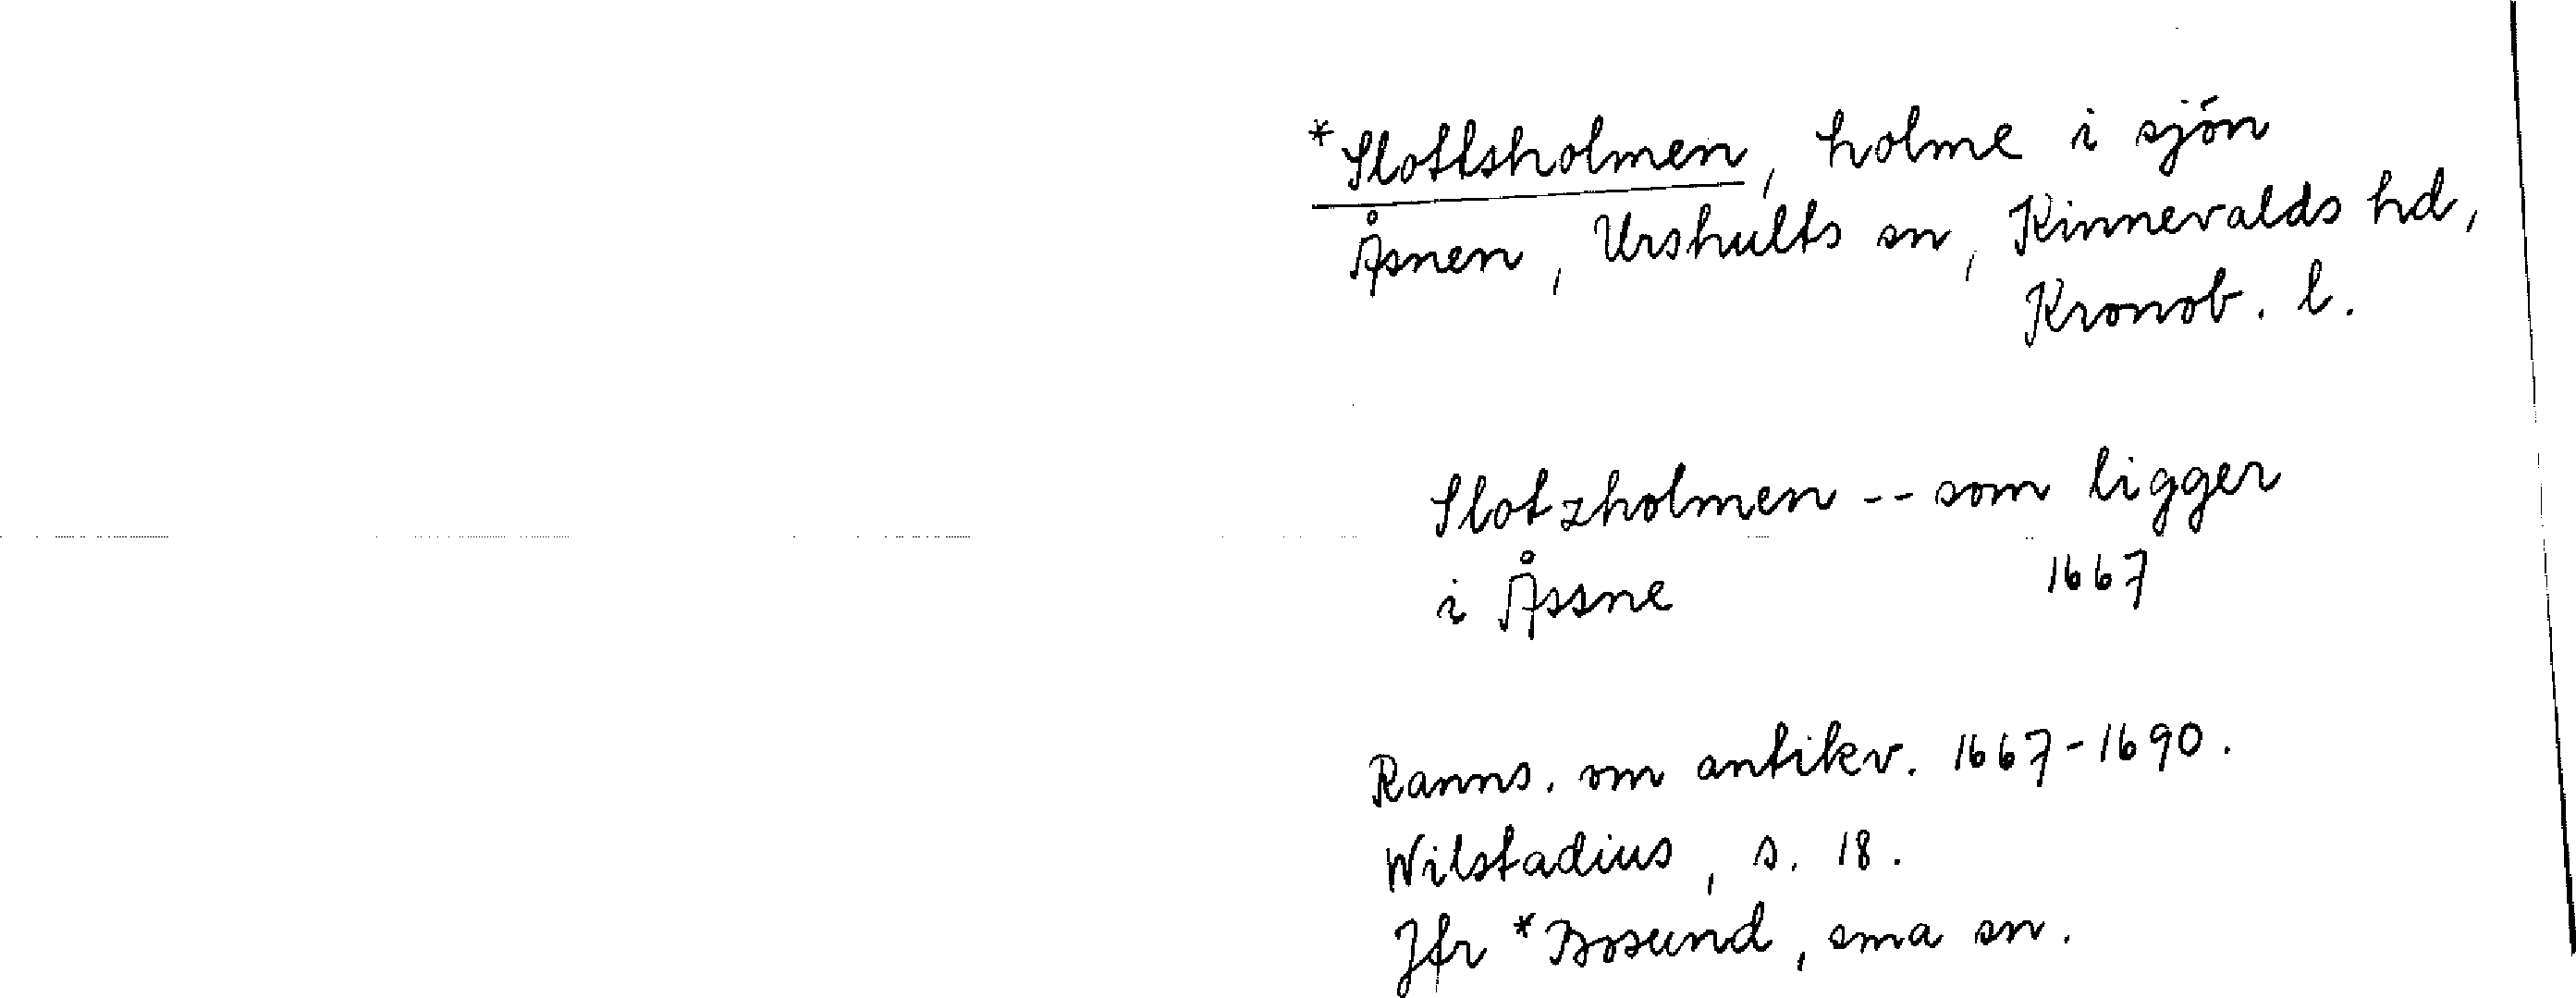 *Slottsholmen, holme i sjön
Åsnen, Urshults sn, Kinnevalds hd,
Kronob. l.
Slotzholmen -- som ligger
i Åssne 1667
Ranns. om antikv. 1667-1690.
Wilstadius, s. 18.
Jfr *Bosund, sma sn.